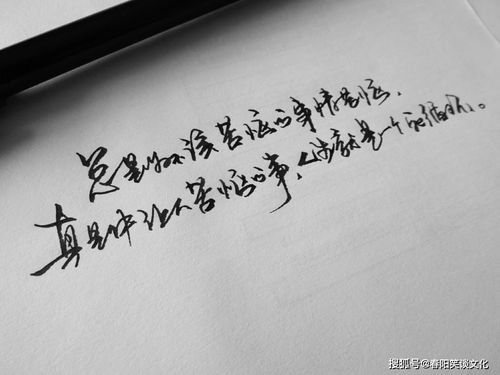 总是为不该苦恼的事情苦恼，
真是件让人苦恼的事，人就是一个死循环。
搜狐号@春阳笑谈文化